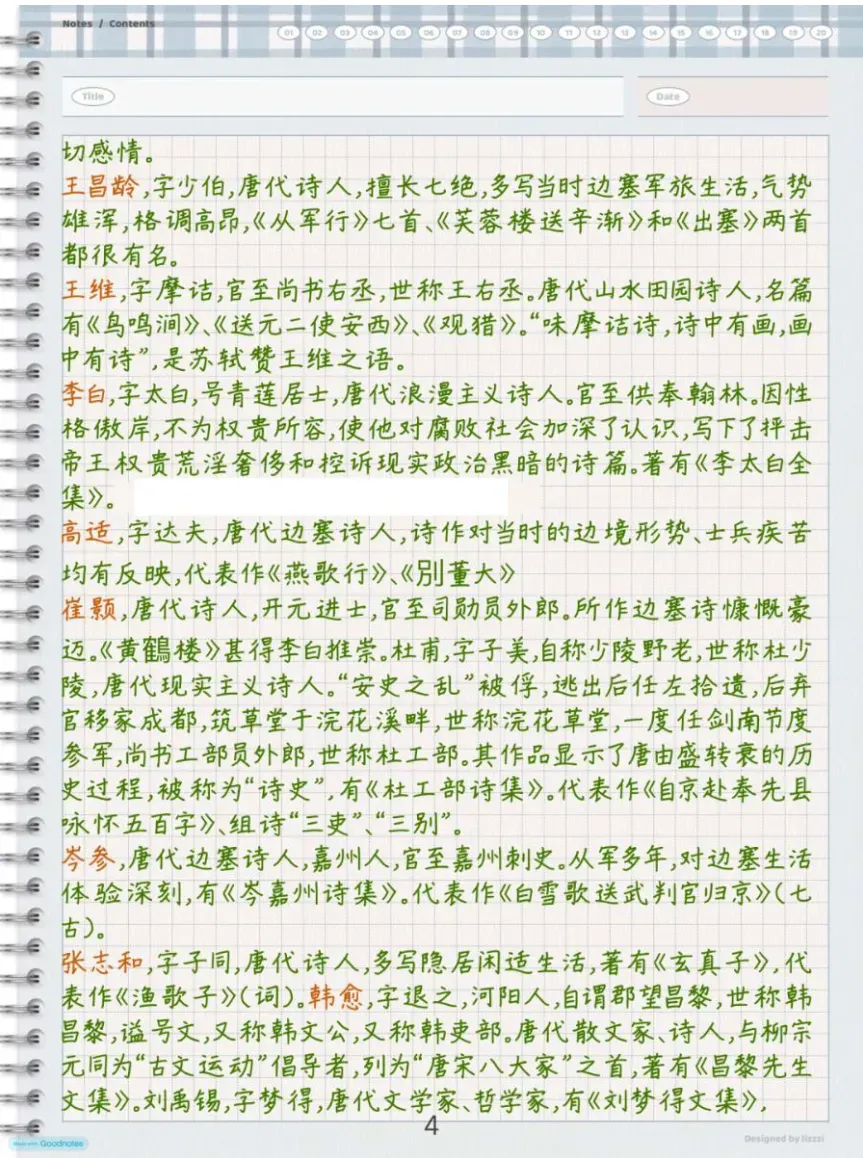 Notes / Contents
01 02 03 04 05 06 07 08 09 10 11 12 13 14 15 16 17 18 19 20
Title
Date
切感情。
王昌龄,字少伯,唐代诗人,擅长七绝,多写当时边塞军旅生活,气势
雄浑,格调高昂,《从军行》七首、《芙蓉楼送辛渐》和《出塞》两首
都很有名。
王维,字摩诘,官至尚书右丞,世称王右丞。唐代山水田园诗人,名篇
有《鸟鸣涧》、《送元二使安西》、《观猎》。“味摩诘诗,诗中有画,画
中有诗”,是苏轼赞王维之语。
李白,字太白,号青莲居士,唐代浪漫主义诗人。官至供奉翰林。因性
格傲岸,不为权贵所容,使他对腐败社会加深了认识,写下了抨击
帝王权贵荒淫奢侈和控诉现实政治黑暗的诗篇。著有《李太白全
集》。
高适,字达夫,唐代边塞诗人,诗作对当时的边境形势、士兵疾苦
均有反映,代表作《燕歌行》、《別董大》
崔颢,唐代诗人,开元进士,官至司勋员外郎。所作边塞诗慷慨豪
迈。《黄鶴楼》甚得李白推崇。杜甫,字子美,自称少陵野老,世称杜少
陵,唐代现实主义诗人。“安史之乱”被俘,逃出后任左拾遗,后弃
官移家成都,筑草堂于浣花溪畔,世称浣花草堂,一度任剑南节度
参军,尚书工部员外郎,世称杜工部。其作品显示了唐由盛转衰的历
史过程,被称为“诗史”,有《杜工部诗集》。代表作《自京赴奉先县
咏怀五百字》、组诗“三吏”、“三别”。
岑参,唐代边塞诗人,嘉州人,官至嘉州刺史。从军多年,对边塞生活
体验深刻,有《岑嘉州诗集》。代表作《白雪歌送武判官归京》(七
古)。
张志和,字子同,唐代诗人,多写隐居闲适生活,著有《玄真子》,代
表作《渔歌子》(词)。韩愈,字退之,河阳人,自谓郡望昌黎,世称韩
昌黎,谥号文,又称韩文公,又称韩吏部。唐代散文家、诗人,与柳宗
元同为“古文运动”倡导者,列为“唐宋八大家”之首,著有《昌黎先生
文集》。刘禹锡,字梦得,唐代文学家、哲学家,有《刘梦得文集》,
4
Made with Goodnotes
Designed by lizzzi